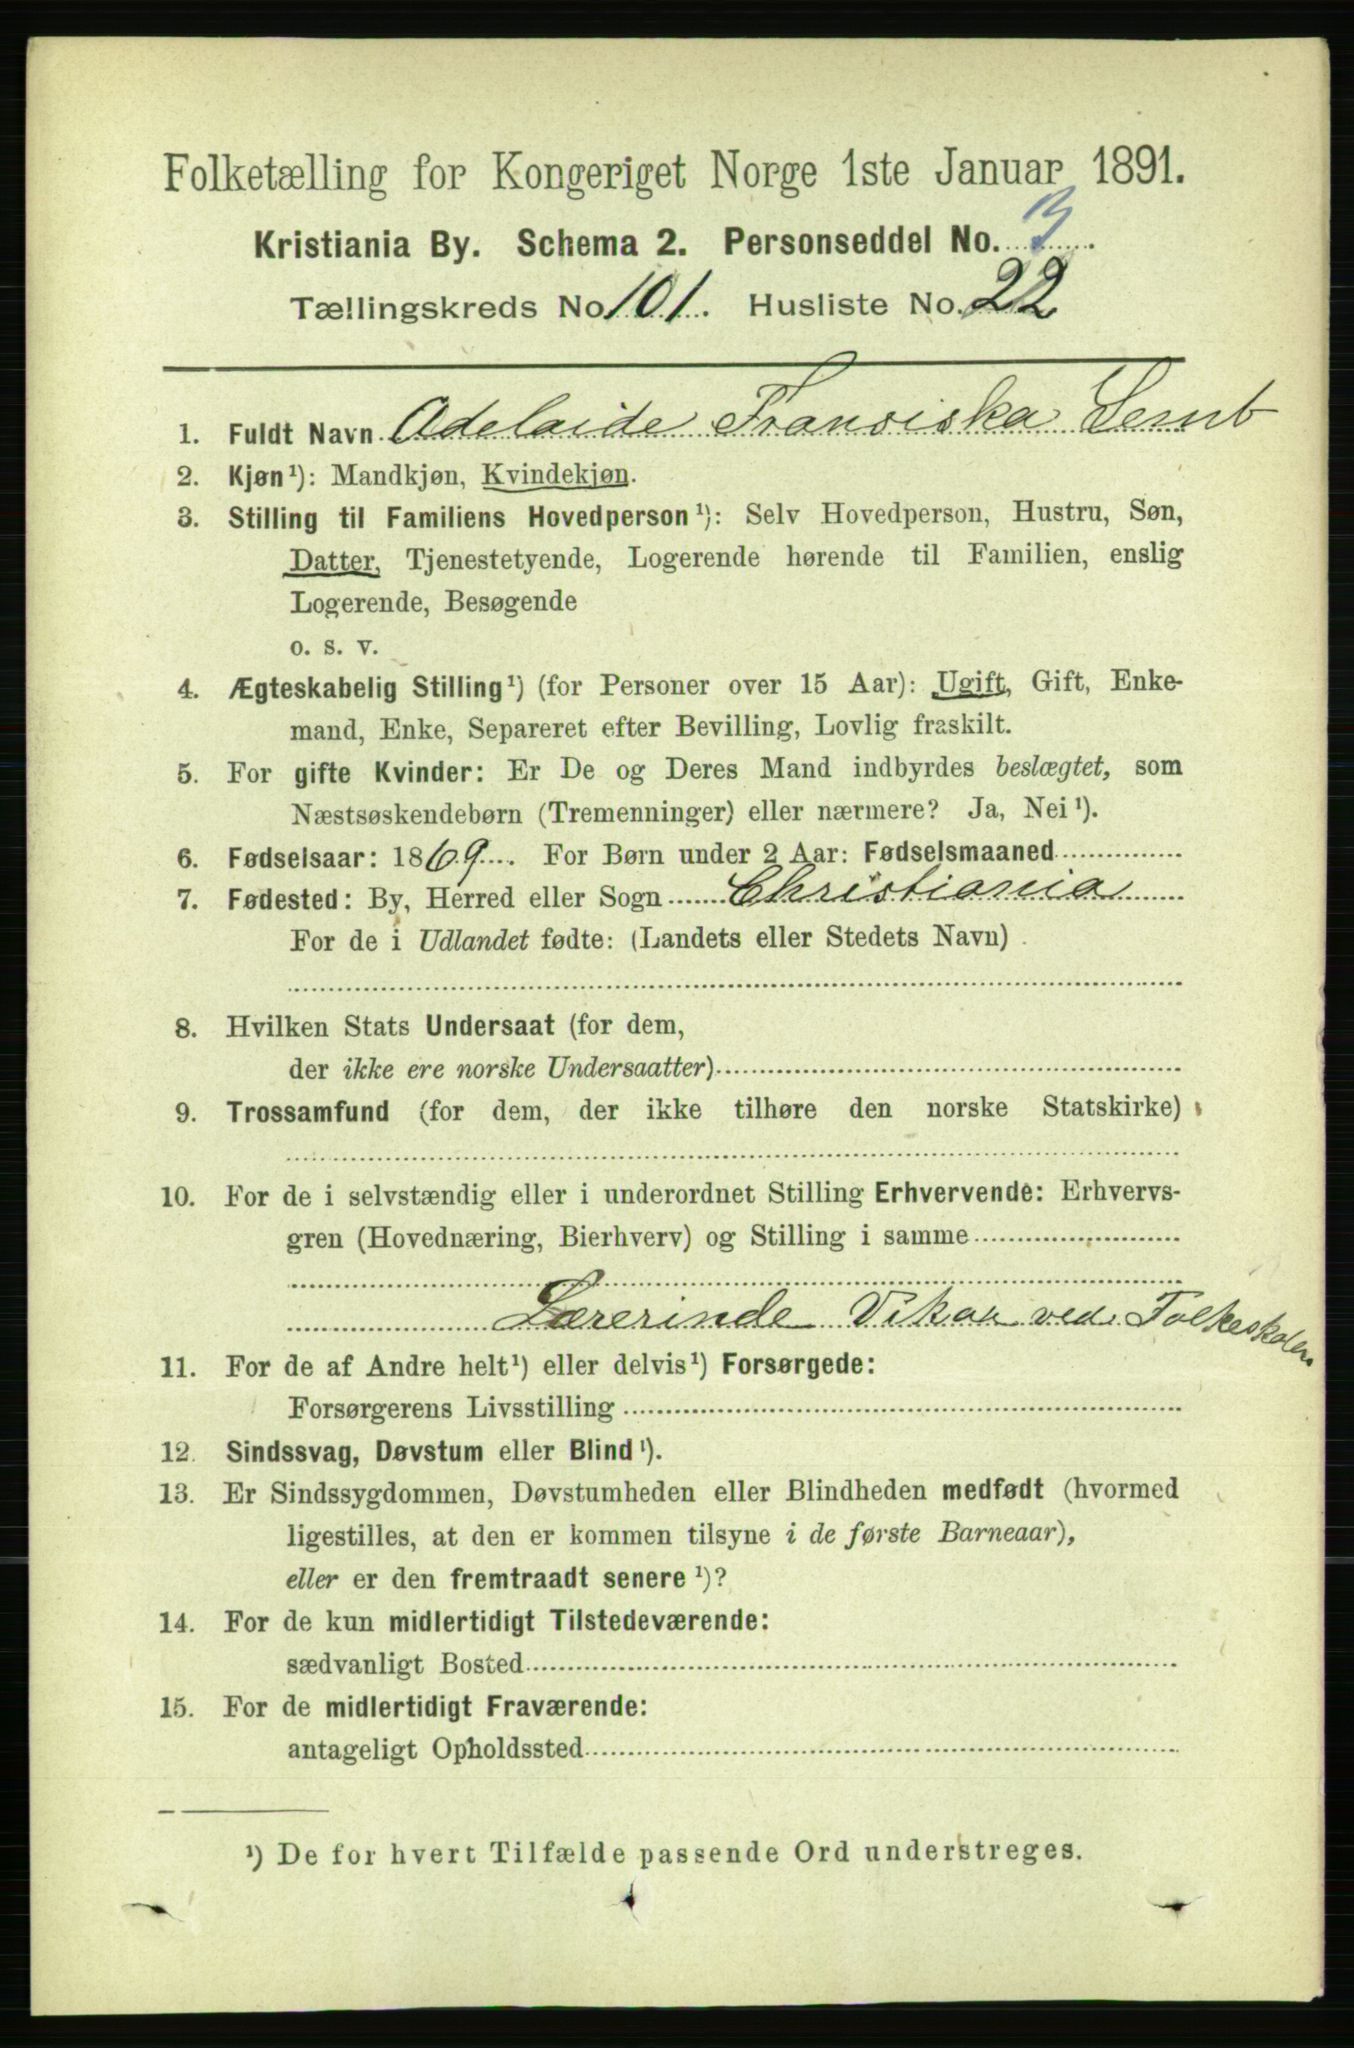 Folketælling for Kongeriget Norge 1ste Januar 1891.
Kristiania By. Schema 2. Personseddel No. 3.
Tællingskreds No. 101. Husliste No. 22
1. Fuldt Navn Adelaide Fransiska Semb
2. Kjøn¹): Mandkjøn, Kvindekjøn.
3. Stilling til Familiens Hovedperson¹): Selv Hovedperson, Hustru, Søn,
Datter, Tjenestetyende, Logerende hørende til Familien, enslig
Logerende, Besøgende
o. s. v.
4. Ægteskabelig Stilling¹) (for Personer over 15 Aar): Ugift, Gift, Enke-
mand, Enke, Separeret efter Bevilling, Lovlig fraskilt.
5. For gifte Kvinder: Er De og Deres Mand indbyrdes beslægtet, som
Næstsøskendebørn (Tremenninger) eller nærmere? Ja, Nei¹).
6. Fødselsaar: 1869. For Børn under 2 Aar: Fødselsmaaned
7. Fødested: By, Herred eller Sogn Christiania
For de i Udlandet fødte: (Landets eller Stedets Navn)
8. Hvilken Stats Undersaat (for dem,
der ikke ere norske Undersaatter)
9. Trossamfund (for dem, der ikke tilhøre den norske Statskirke)
10. For de i selvstændig eller i underordnet Stilling Erhvervende: Erhvervs-
gren (Hovednæring, Bierhverv) og Stilling i samme
Lærerinde Vikar ved Folkeskolen
11. For de af Andre helt¹) eller delvis¹) Forsørgede:
Forsørgerens Livsstilling
12. Sindssvag, Døvstum eller Blind¹).
13. Er Sindssygdommen, Døvstumheden eller Blindheden medfødt (hvormed
ligestilles, at den er kommen tilsyne i de første Barneaar),
eller er den fremtraadt senere¹)?
14. For de kun midlertidigt Tilstedeværende:
sædvanligt Bosted
15. For de midlertidigt Fraværende:
antageligt Opholdssted
¹) De for hvert Tilfælde passende Ord understreges.